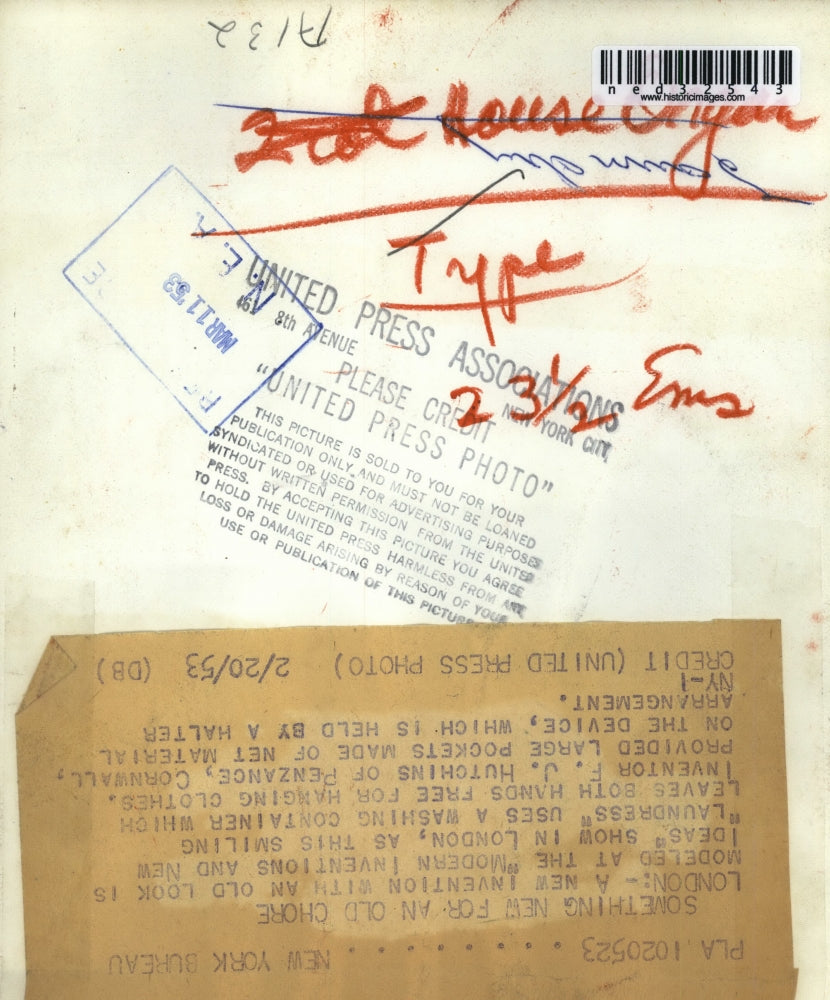 A132
ned32543
www.historicimages.com
House Organ
Type
23½ Ems
N. E. A.
MAR 11 '53
UNITED PRESS ASSOCIATIONS
8th AVENUE
NEW YORK CITY,
PLEASE CREDIT
"UNITED PRESS PHOTO"
THIS PICTURE IS SOLD TO YOU FOR YOUR
PUBLICATION ONLY AND MUST NOT BE LOANED
SYNDICATED OR USED FOR ADVERTISING PURPOSES
WITHOUT WRITTEN PERMISSION FROM THE UNITED
PRESS. BY ACCEPTING THIS PICTURE YOU AGREE
TO HOLD THE UNITED PRESS HARMLESS FROM ANY
LOSS OR DAMAGE ARISING BY REASON OF YOUR
USE OR PUBLICATION OF THIS PICTURE
PLA 1020523 . . . . . . . . . . NEW YORK BUREAU
SOMETHING NEW FOR AN OLD CHORE
LONDON:- A NEW INVENTION WITH AN OLD LOOK IS
MODELED AT THE "MODERN INVENTIONS AND NEW
IDEAS" SHOW IN LONDON, AS THIS SMILING
"LAUNDRESS" USES A WASHING CONTAINER WHICH
LEAVES BOTH HANDS FREE FOR HANGING CLOTHES.
INVENTOR F. J. HUTCHINS OF PENZANCE, CORNWALL,
PROVIDED LARGE POCKETS MADE OF NET MATERIAL
ON THE DEVICE, WHICH IS HELD BY A HALTER
ARRANGEMENT.
NY-1
CREDIT (UNITED PRESS PHOTO) 2/20/53 (DB)